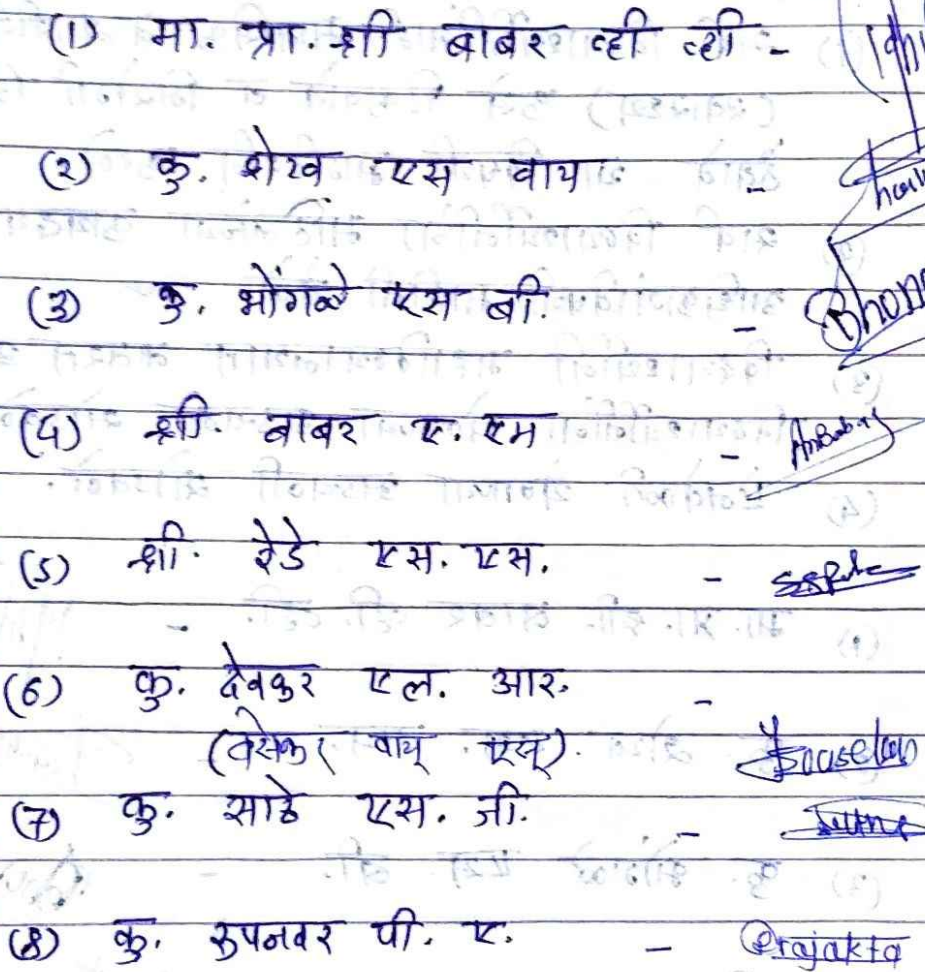 (1) मा. प्रा. श्री बाबर व्ही व्ही -
(२) कु. शेख एस वाय -
(३) कु. भोंगळे एस बी. - Bhon
(4) श्री. बाबर ए. एम -
(5) श्री. रेडे एस. एस. -
(6) कु. देवकुर एल. आर. -
(वसेकर वाय् एस्).
(7) कु. साठे एस. जी. -
(8) कु. रुपनवर पी. ए. - Prajakta